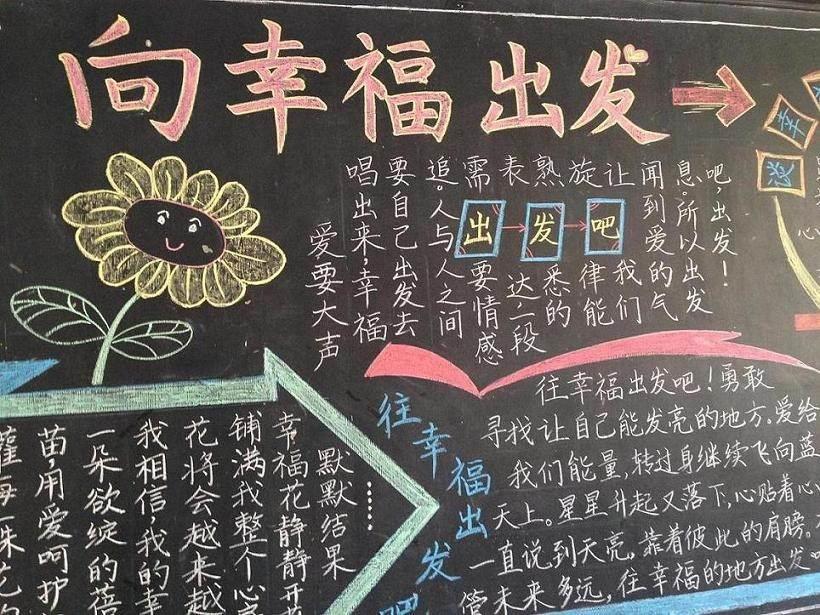 向幸福出发
幸
爱要大声
唱出来,幸福
要自己出发去
追。人与人之间
需要情感
表达,一段
熟悉的
旋律能
让我们
闻到爱的气
息。所以出发
吧,出发!
出发吧
往幸福出发吧
往幸福出发吧!勇敢
寻找让自己能发亮的地方。爱给
我们能量,转过身继续飞向蓝
天上。星星升起又落下,心贴着心
一直说到天亮,靠着彼此的肩膀。
管未来多远,往幸福的地方出发
每一株花
苗,用爱呵护
一朵欲绽的蓓
我相信,我的幸
花将会越来越
铺满我整个心
幸福花静静开
默默结果……